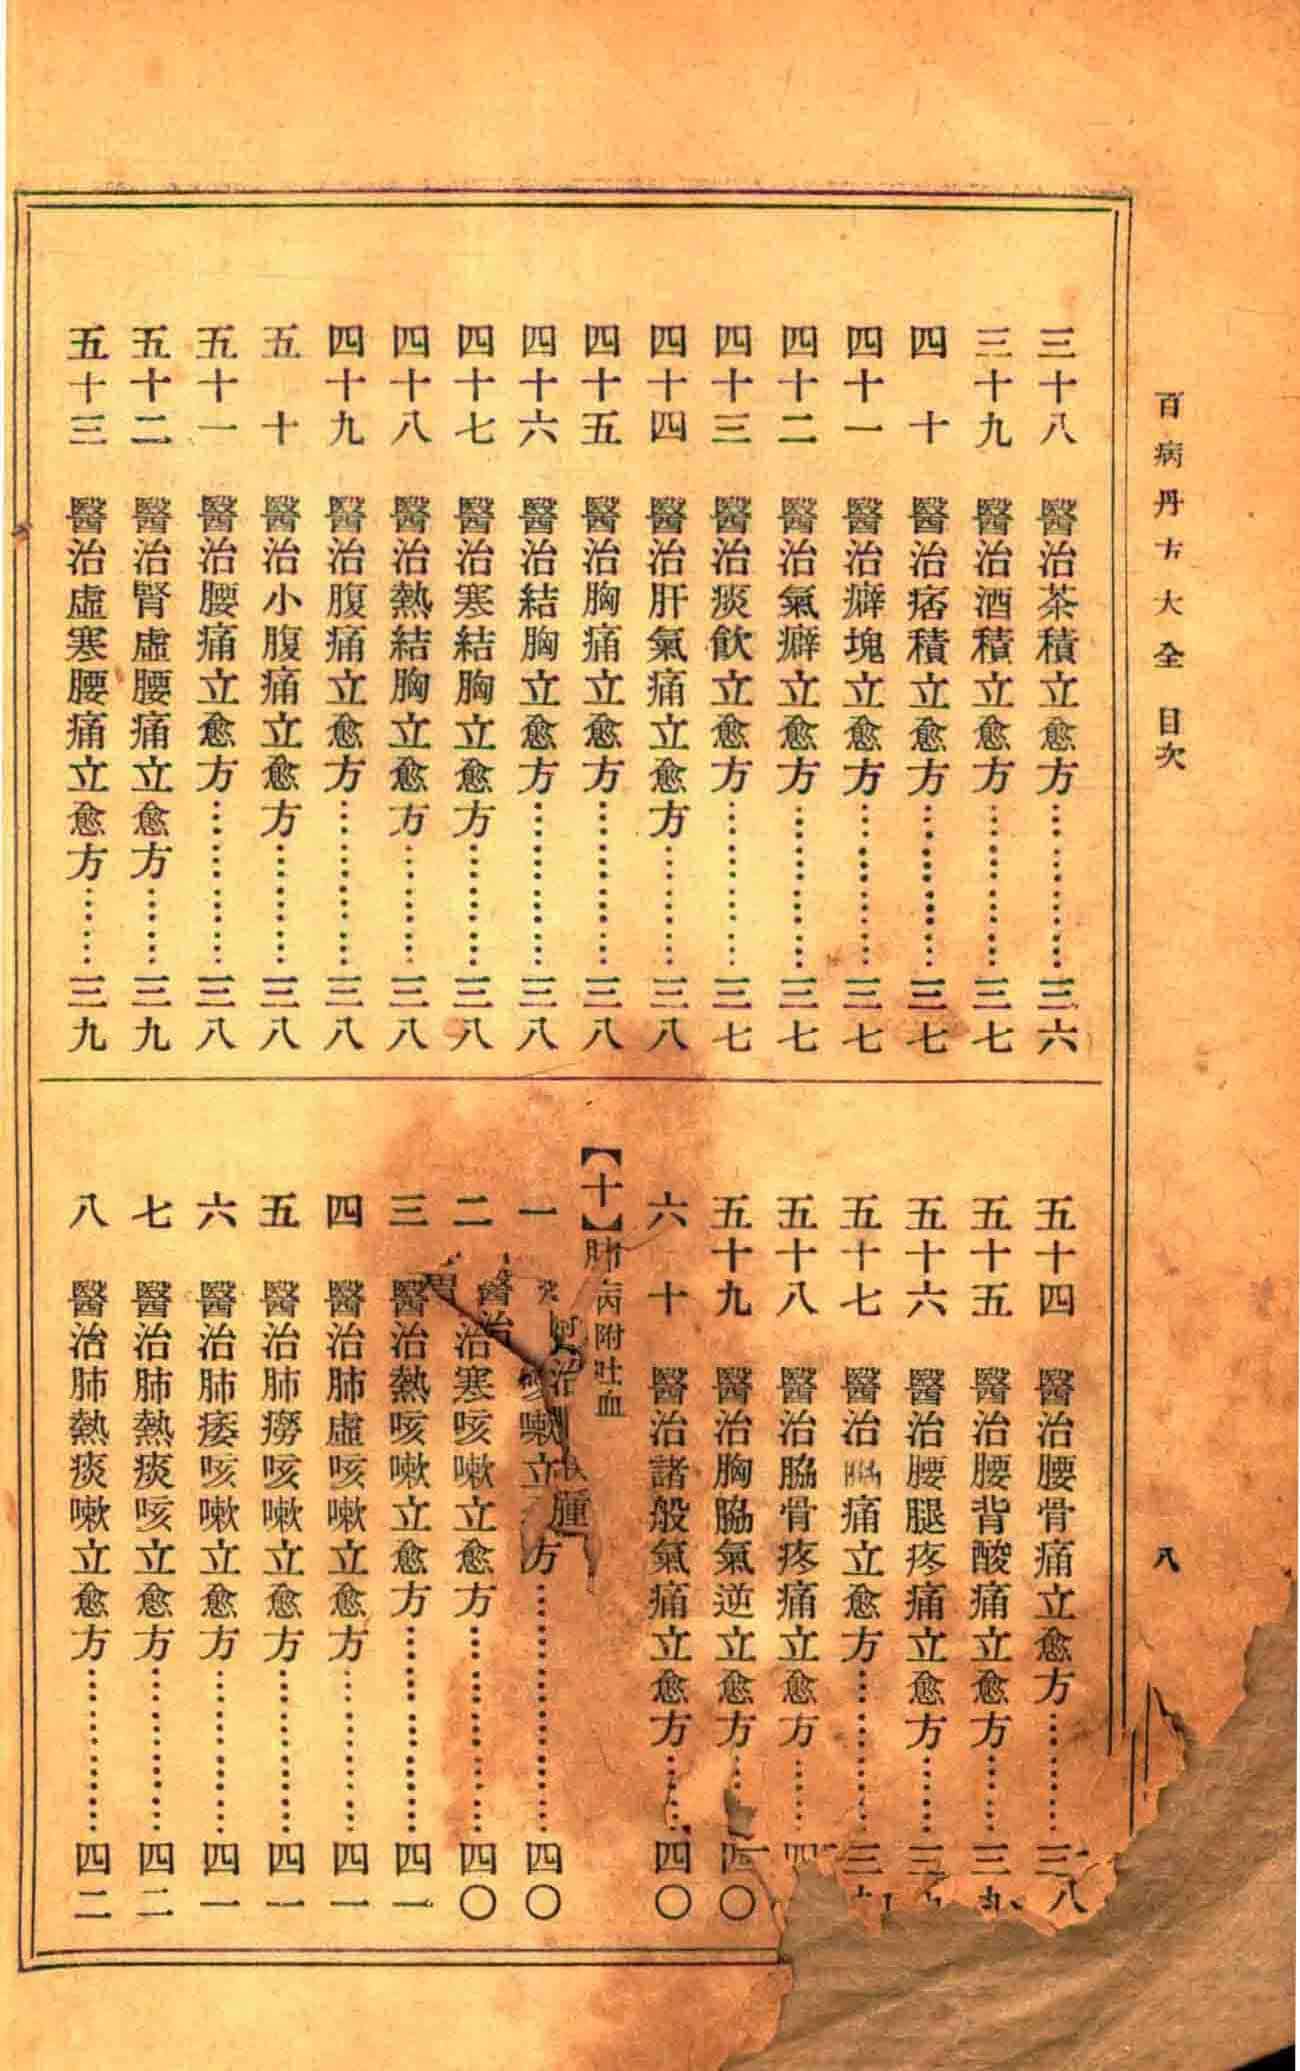 百病丹方大全 目次
八
三十八 醫治茶積立愈方…………三六
三十九 醫治酒積立愈方…………三七
四十 醫治痞積立愈方…………三七
四十一 醫治癖塊立愈方…………三七
四十二 醫治氣癖立愈方…………三七
四十三 醫治痰飲立愈方…………三七
四十四 醫治肝氣痛立愈方…………三八
四十五 醫治胸痛立愈方…………三八
四十六 醫治結胸立愈方…………三八
四十七 醫治寒結胸立愈方…………三八
四十八 醫治熱結胸立愈方…………三八
四十九 醫治腹痛立愈方…………三八
五十 醫治小腹痛立愈方…………三八
五十一 醫治腰痛立愈方…………三八
五十二 醫治腎虛腰痛立愈方………三九
五十三 醫治虛寒腰痛立愈方………三九
五十四 醫治腰骨痛立愈方…………三八
五十五 醫治腰背酸痛立愈方………三九
五十六 醫治腰腿疼痛立愈方………三
五十七 醫治痛立愈方…………三
五十八 醫治脇骨疼痛立愈方………四
五十九 醫治胸脇氣逆立愈方………四〇
六十 醫治諸般氣痛立愈方………四〇
【十】肺病附吐血
一 咳嗽立方…………四〇
二 醫治寒咳嗽立愈方…………四〇
三 醫治熱咳嗽立愈方…………四一
四 醫治肺虛咳嗽立愈方…………四一
五 醫治肺癆咳嗽立愈方…………四一
六 醫治肺痿咳嗽立愈方…………四一
七 醫治肺熱痰咳立愈方…………四二
八 醫治肺熱痰嗽立愈方…………四二